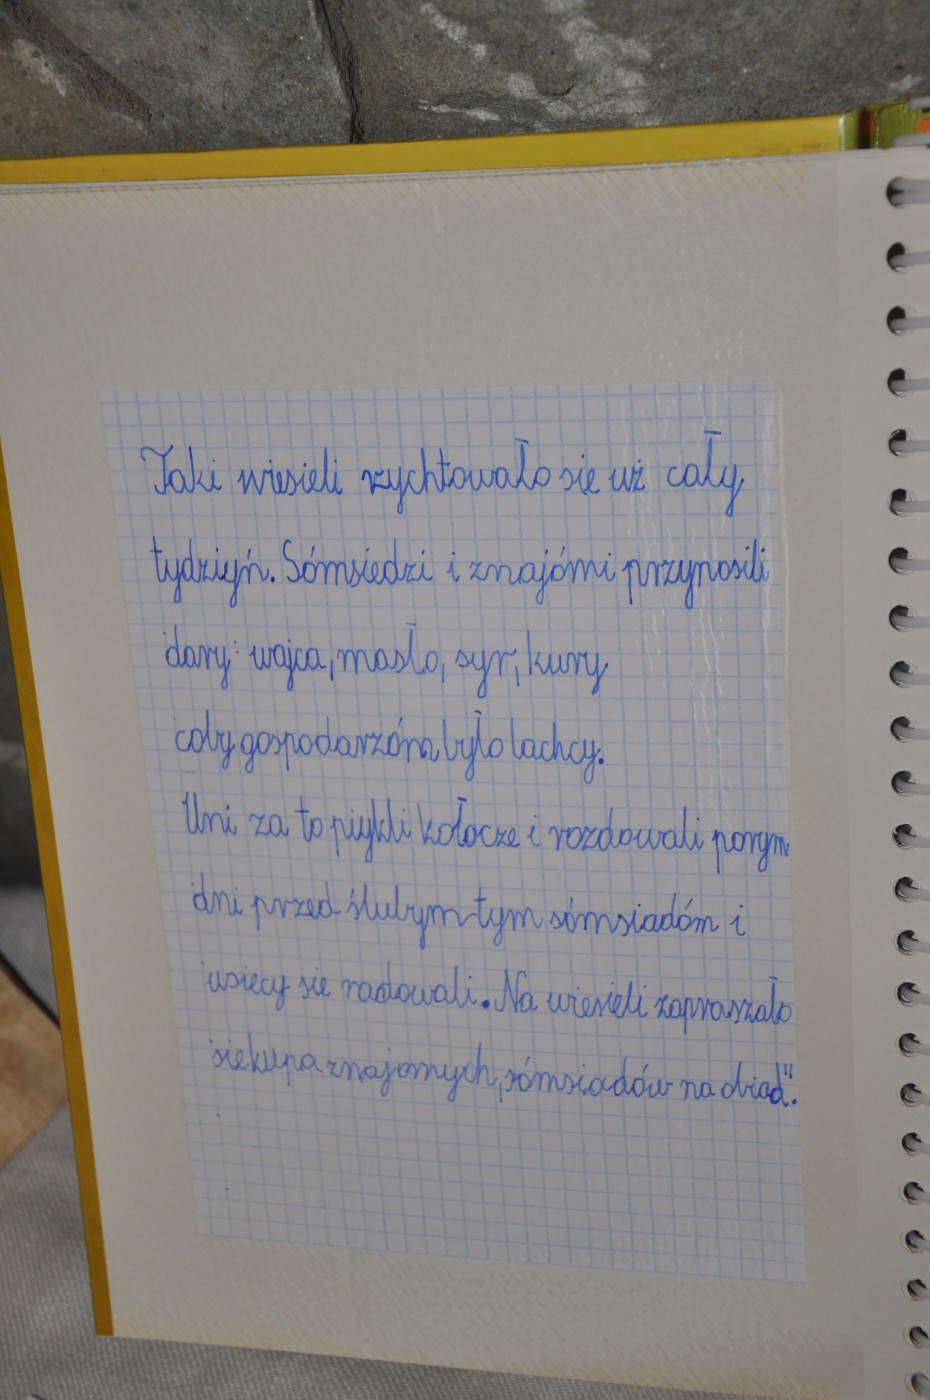 Taki wiesieli rychtowało sie uż cały
tydziyń. Sómsiedzi i znajómi przynosili
dary: wajca, masło, syr, kury
coby gospodarzóm było lachcy.
Uni za to piykli kołocze i rozdowali porym
dni przed ślubym tym sómsiadóm i
wsiecy sie radowali. Na wiesieli zapraszało
sie kupa znajomych, sómsiadów na obiad".